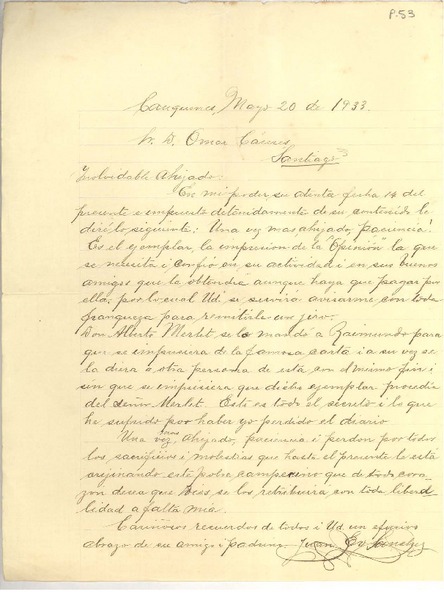 P.53
Cauquenes, Mayo 20 de 1933.
Sr. D. Omar Cáceres
Santiago
Inolvidable Ahijado:
En mi poder su atenta fecha 14 del
presente e impuesto detenidamente de su contenido le
diré lo siguiente: Una vez mas ahijado, paciencia!
Es el ejemplar, la impresion de la "Opinión" la que
se necesita i confio en su actividad i en sus buenos
amigos que la obtendrá aunque haya que pagar por
ella, por lo cual Ud. se servirá avisarme con toda
franqueza para remitirle un jiro.-
Don Alberto Merlet, se la mandó a Raimundo para
que se impusiera de la famosa carta i a su vez se
la diera a otra persona de ésta con el mismo fin i
sin que se impusiera que dicho ejemplar procedia
del señor Merlet. Este es todo el secreto i lo que
he sufrido por haber yo perdido el diario
Una vez mas Ahijado, paciencia i perdon por todos
los sacrificios i molestias que hasta el presente le está
orijinando este pobre campesino que de todo cora-
zon desea que Dios se los retribuirá con toda liberal-
lidad a falta mia.
Cariñosos recuerdos de todos i Ud. un efusivo
abrazo de su amigo i padrino. Juan Ev. Sánchez